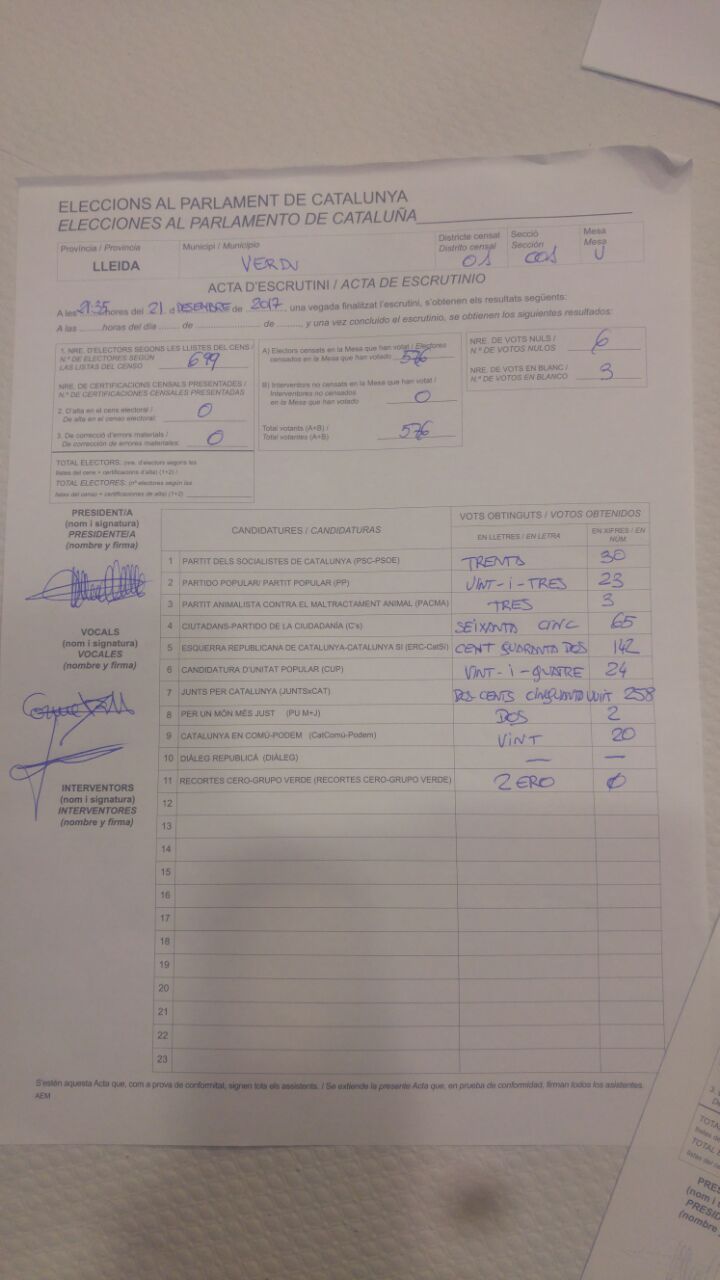 ELECCIONS AL PARLAMENT DE CATALUNYA
ELECCIONES AL PARLAMENTO DE CATALUÑA
Província / Provincia Municipi / Municipio Districte censal Distrito censal Secció Sección Mesa Mesa
LLEIDA VERDU 01 001 U
ACTA D'ESCRUTINI / ACTA DE ESCRUTINIO
A les 21:35 hores del 21 d DESEMBRE de 2017, una vegada finalitzat l'escrutini, s'obtenen els resultats següents:
A las ........horas del día ........ de ........................ de ........, y una vez concluido el escrutinio, se obtienen los siguientes resultados:
1. NRE. D'ELECTORS SEGONS LES LLISTES DEL CENS /
N.º DE ELECTORES SEGÚN
LAS LISTAS DEL CENSO 699
NRE. DE CERTIFICACIONS CENSALS PRESENTADES /
N.º DE CERTIFICACIONES CENSALES PRESENTADAS
2. D'alta en el cens electoral / 0
De alta en el censo electoral:
3. De correcció d'errors materials / 0
De corrección de errores materiales:
TOTAL ELECTORS: (nre. d'electors segons les
llistes del cens + certificacions d'alta) (1+2) /
TOTAL ELECTORES: (nº electores según las
listas del censo + certificaciones de alta) (1+2)
A) Electors censats en la Mesa que han votat / Electores
censados en la Mesa que han votado 576
B) Interventors no censats en la Mesa que han votat /
Interventores no censados
en la Mesa que han votado 0
Total votants (A+B) /
Total votantes (A+B) 576
NRE. DE VOTS NULS / 6
N.º DE VOTOS NULOS
NRE. DE VOTS EN BLANC / 3
N.º DE VOTOS EN BLANCO
PRESIDENT/A
(nom i signatura)
PRESIDENTE/A
(nombre y firma)
VOCALS
(nom i signatura)
VOCALES
(nombre y firma)
INTERVENTORS
(nom i signatura)
INTERVENTORES
(nombre y firma)
CANDIDATURES / CANDIDATURAS VOTS OBTINGUTS / VOTOS OBTENIDOS
EN LLETRES / EN LETRA EN XIFRES / EN NÚM.
1 PARTIT DELS SOCIALISTES DE CATALUNYA (PSC-PSOE) TRENTA 30
2 PARTIDO POPULAR/ PARTIT POPULAR (PP) VINT-i-TRES 23
3 PARTIT ANIMALISTA CONTRA EL MALTRACTAMENT ANIMAL (PACMA) TRES 3
4 CIUTADANS-PARTIDO DE LA CIUDADANÍA (C's) SEIXANTA CINC 65
5 ESQUERRA REPUBLICANA DE CATALUNYA-CATALUNYA SÍ (ERC-CatSí) CENT QUARANTA DOS 142
6 CANDIDATURA D'UNITAT POPULAR (CUP) VINT-i-QUATRE 24
7 JUNTS PER CATALUNYA (JUNTSxCAT) DOS-CENTS CINQUANTA VUIT 258
8 PER UN MÓN MÉS JUST (PU M+J) DOS 2
9 CATALUNYA EN COMÚ-PODEM (CatComú-Podem) VINT 20
10 DIÀLEG REPUBLICÀ (DIÀLEG) — —
11 RECORTES CERO-GRUPO VERDE (RECORTES CERO-GRUPO VERDE) ZERO 0
12
13
14
15
16
17
18
19
20
21
22
23
S'estén aquesta Acta que, com a prova de conformitat, signen tots els assistents. / Se extiende la presente Acta que, en prueba de conformidad, firman todos los asistentes.
AEM